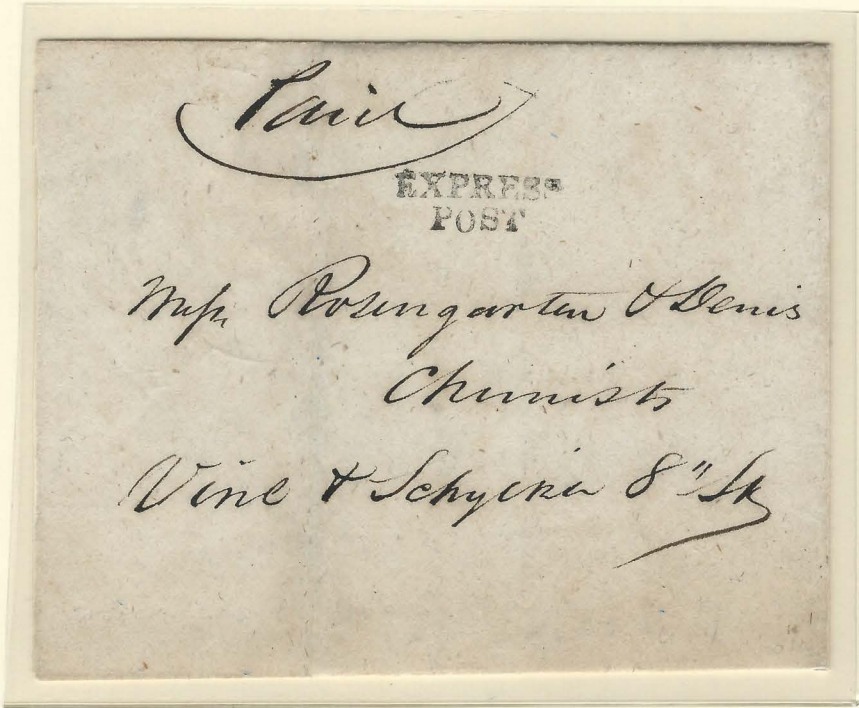 Paid
EXPRESS
POST
Messrs Rosengarten & Denis
Chemists
Vine & Schylkill 8" St